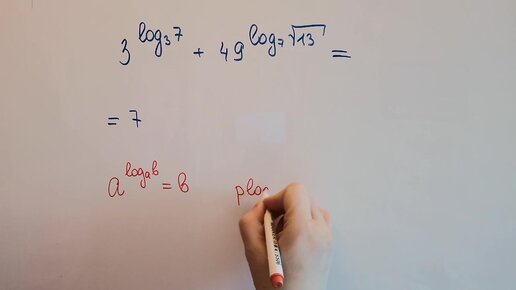 3^{log_3 7} + 49^{log_7 √13} =
= 7
a^{log_a b} = b plog